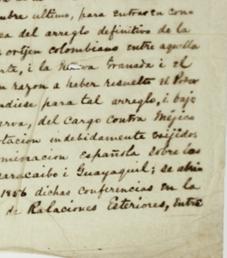 mbre ultimo, para entrar en con
ea del arreglo definitivo de la
ortjen colombiano entre aquella
rte, i la Nueva Granada i el
n razon a haber resuelto el Pode
ndiese para tal arreglo, i bajo
erva, del cargo contra Méjico
otacion indebidamente exijidos
ominacion española sobre los
aracaibo i Guayaquil; se abrie
1856 dichas conferencias en la
de Relaciones Esteriores, entre